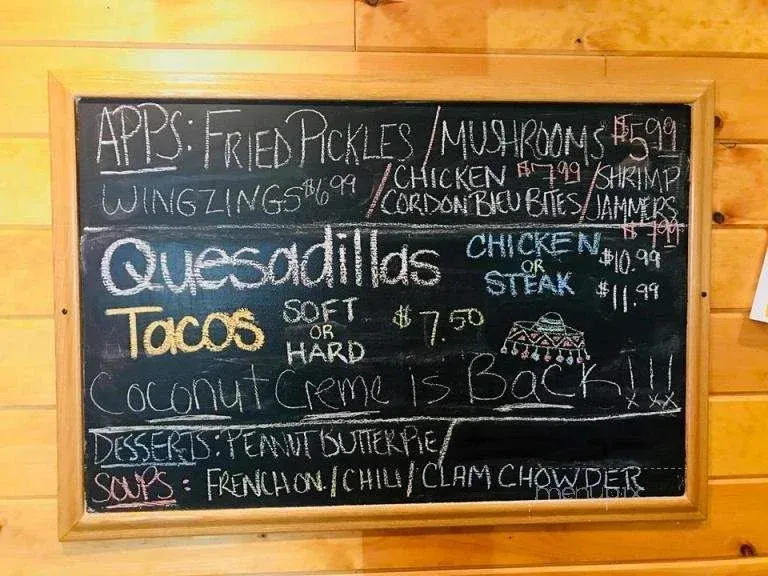 APPS: FRIED PICKLES / MUSHROOMS $5.99
WINGZINGS $6.99 / CHICKEN CORDON BLEU BITES $7.99 / SHRIMP JAMMERS $7.99
Quesadillas CHICKEN OR STEAK $10.99 $11.99
Tacos SOFT OR HARD $7.50
Coconut Creme is Back!!!
DESSERTS: PEANUT BUTTER PIE /
SOUPS: FRENCH ON. / CHILI / CLAM CHOWDER
menupix